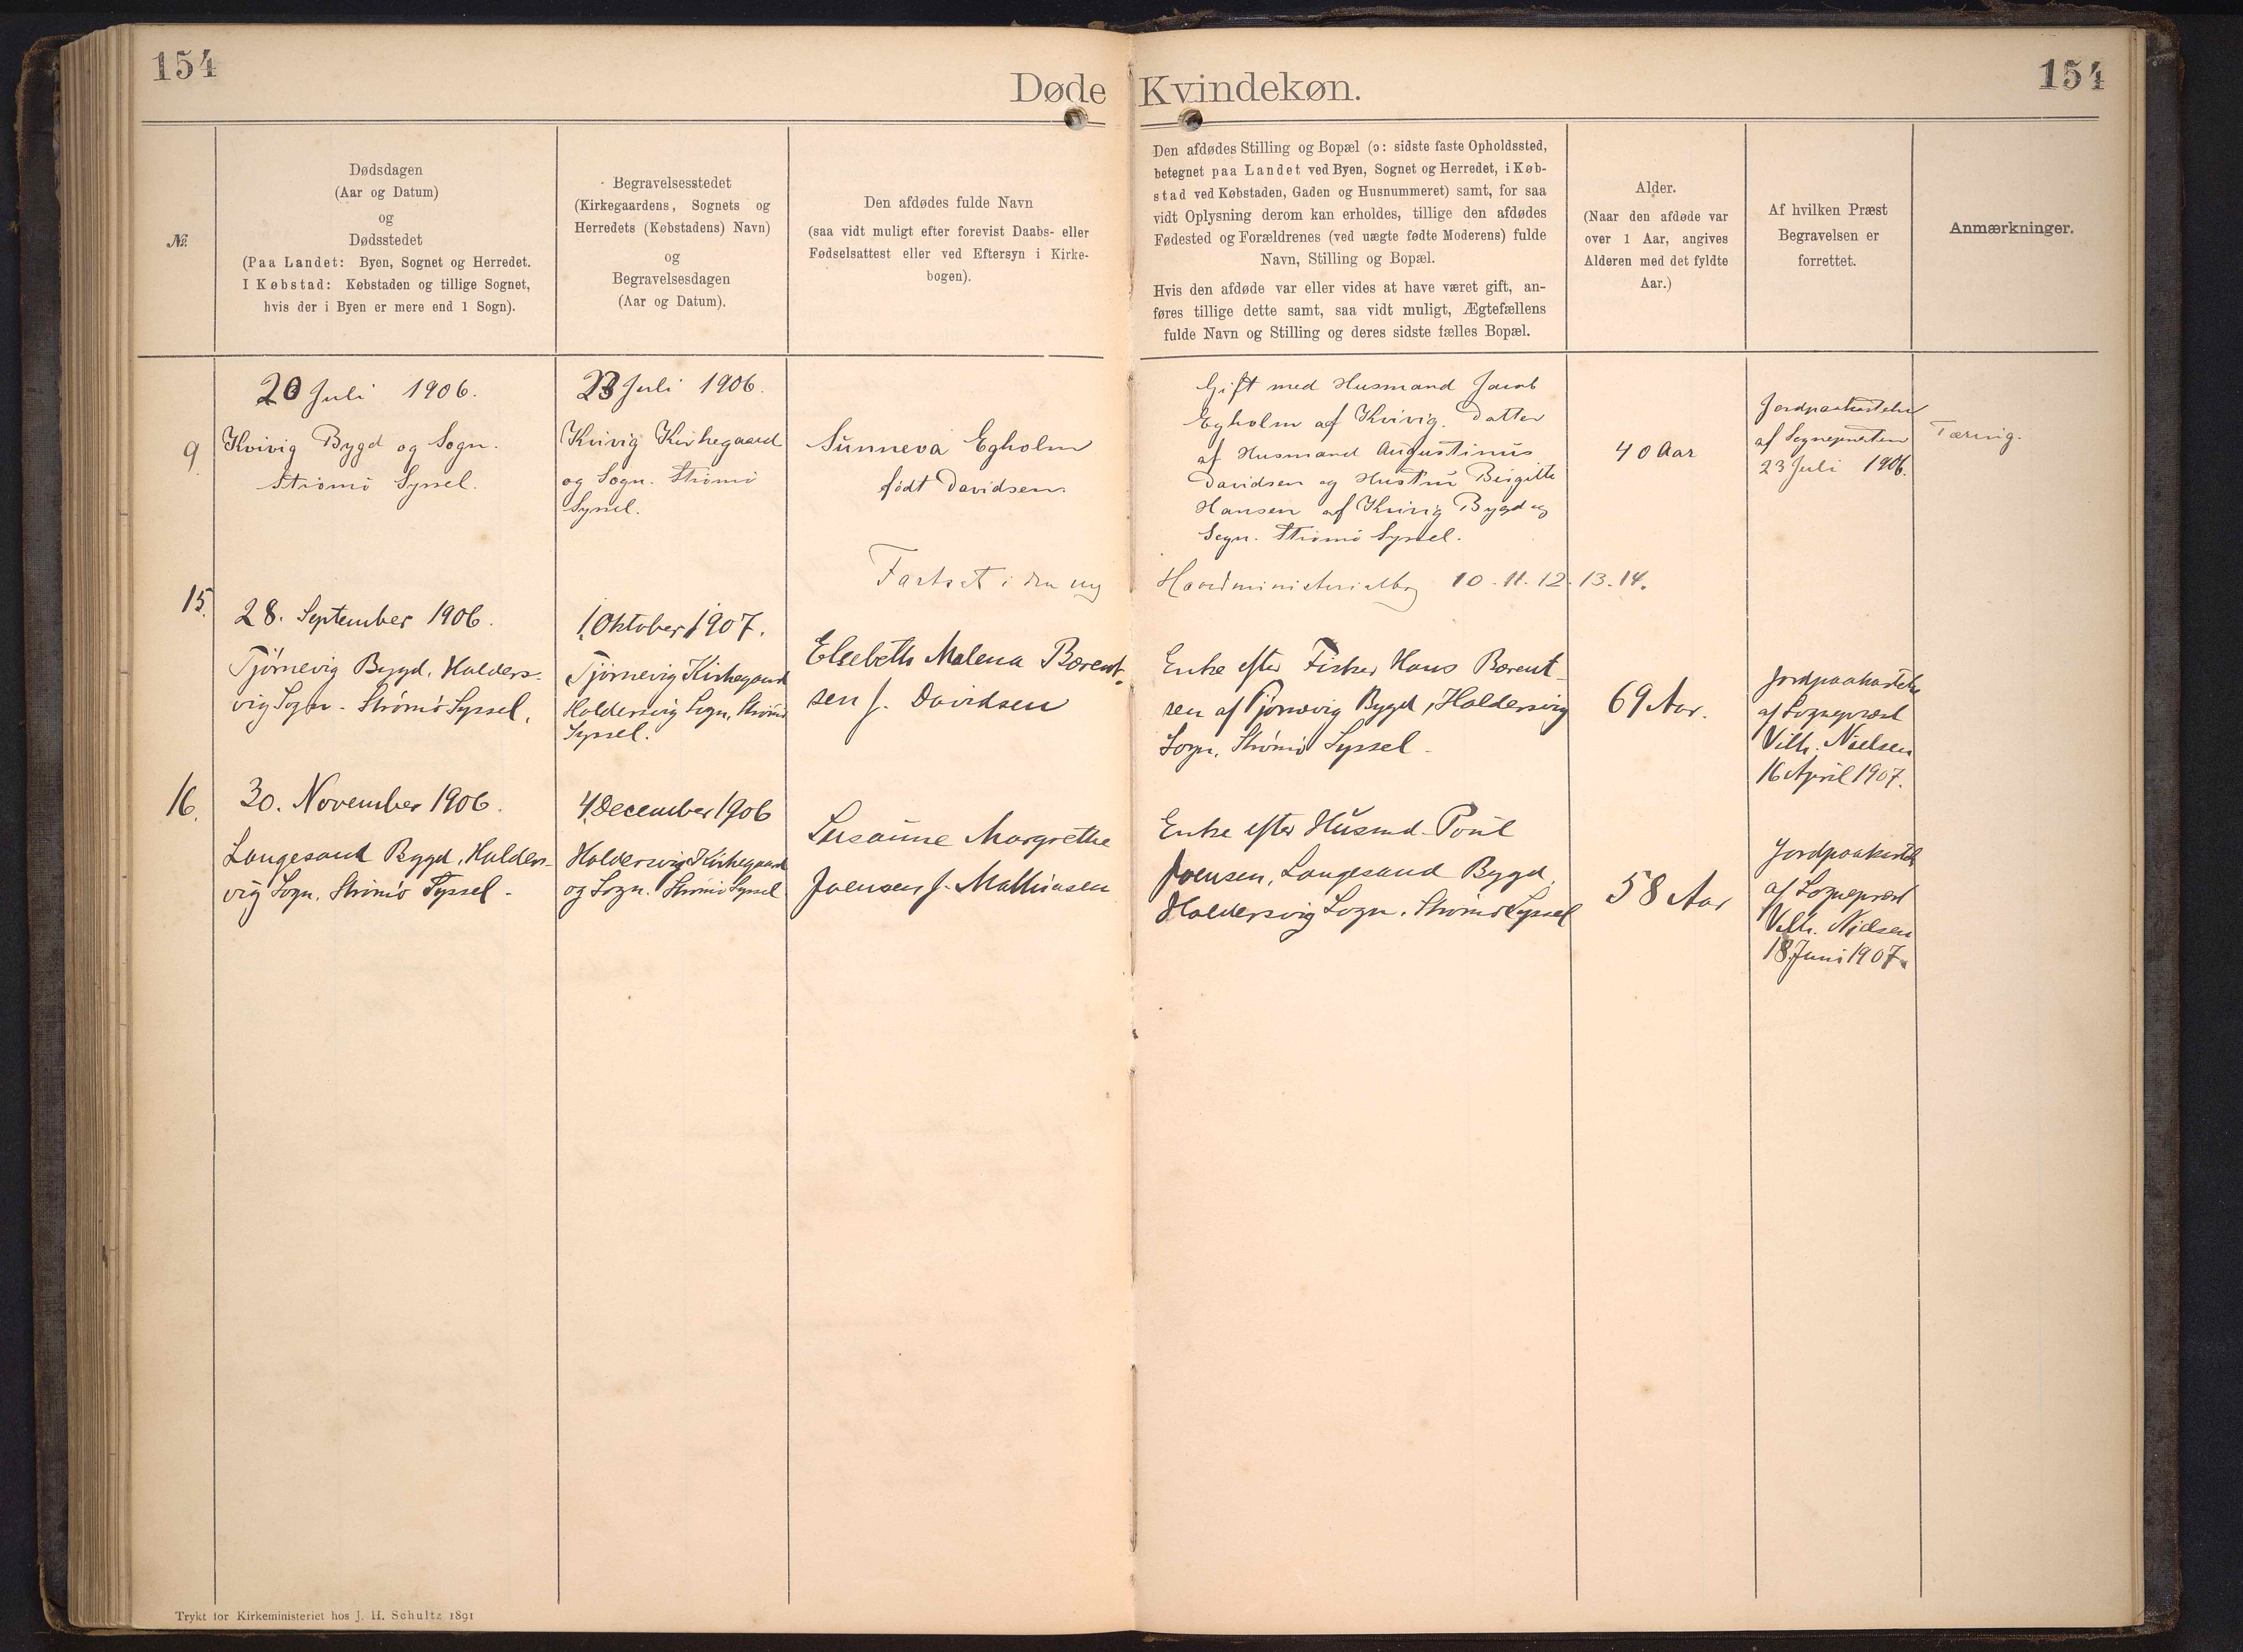 154
154
Døde Kvindekøn.
№
Dødsdagen
(Aar og Datum)
og
Dødsstedet
(Paa Landet: Byen, Sognet og Herredet.
I Købstad: Købstaden og tillige Sognet,
hvis der i Byen er mere end 1 Sogn).
Begravelsesstedet
(Kirkegaardens, Sognets og
Herredets (Købstadens) Navn)
og
Begravelsesdagen
(Aar og Datum).
Den afdødes fulde Navn
(saa vidt muligt efter forevist Daabs- eller
Fødselsattest eller ved Eftersyn i Kirke-
bogen).
Den afdødes Stilling og Bopæl (ɔ: sidste faste Opholdssted,
betegnet paa Landet ved Byen, Sognet og Herredet, i Køb-
stad ved Købstaden, Gaden og Husnummeret) samt, for saa
vidt Oplysning derom kan erholdes, tillige den afdødes
Fødested og Forældrenes (ved uægte fødte Moderens) fulde
Navn, Stilling og Bopæl.
Hvis den afdøde var eller vides at have været gift, an-
føres tillige dette samt, saa vidt muligt, Ægtefællens
fulde Navn og Stilling og deres sidste fælles Bopæl.
Alder.
(Naar den afdøde var
over 1 Aar, angives
Alderen med det fyldte
Aar.)
Af hvilken Præst
Begravelsen er
forrettet.
Anmærkninger.
9
20 Juli 1906.
Kvivig Bygd og Sogn.
Strömö Syssel.
23 Juli 1906.
Kvivig Kirkegaard
og Sogn. Strömö
Syssel.
Sunneva Egholm
født Davidsen.
Gift med Husmand Jacob
Egholm af Kvivig. Datter
af Husmand Augustinus
Davidsen og Hustru Birgitte
Hansen af Kvivig Bygd og
Sogn. Strömö Syssel.
40 Aar
Jordpaakastelse
af Sognepræsten
23 Juli 1906.
Tæring.
Fortsat i den ny Hovedministerialbog 10-11-12-13-14.
15.
28. September 1906.
Tjörnevig Bygd, Halders-
vig Sogn - Strömö Syssel.
1. Oktober 1907.
Tjörnevig Kirkegaard
Haldersvig Sogn, Strömö
Syssel.
Elsebeth Malena Bærent-
sen f. Davidsen
Enke efter Fisker Hans Bærent-
sen af Tjørnevig Bygd, Haldersvig
Sogn, Strömö Syssel.
69 Aar.
Jordpaakastelse
af Sognepræst
Vilh. Nielsen
16 April 1907.
16.
30. November 1906.
Langesand Bygd, Halders-
vig Sogn, Strömö Syssel -
4. December 1906
Haldersvig Kirkegaard
og Sogn. Strömö Syssel
Susanne Margrethe
Joensen f. Mathiasen
Enke efter Husmd. Poul
Joensen, Langesand Bygd,
Haldersvig Sogn, Strömö Syssel
58 Aar
Jordpaakastelse
af Sognepræst
Vilh. Nielsen
18. Juni 1907.
Trykt for Kirkeministeriet hos J. H. Schultz 1891